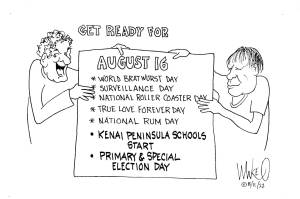 GET READY FOR
AUGUST 16
* WORLD BRATWORST DAY
* SURVEILLANCE DAY
* NATIONAL ROLLER COASTER DAY
* TRUE LOVE FOREVER DAY
* NATIONAL RUM DAY
• KENAI PENINSULA SCHOOLS
START
• PRIMARY & SPECIAL
ELECTION DAY